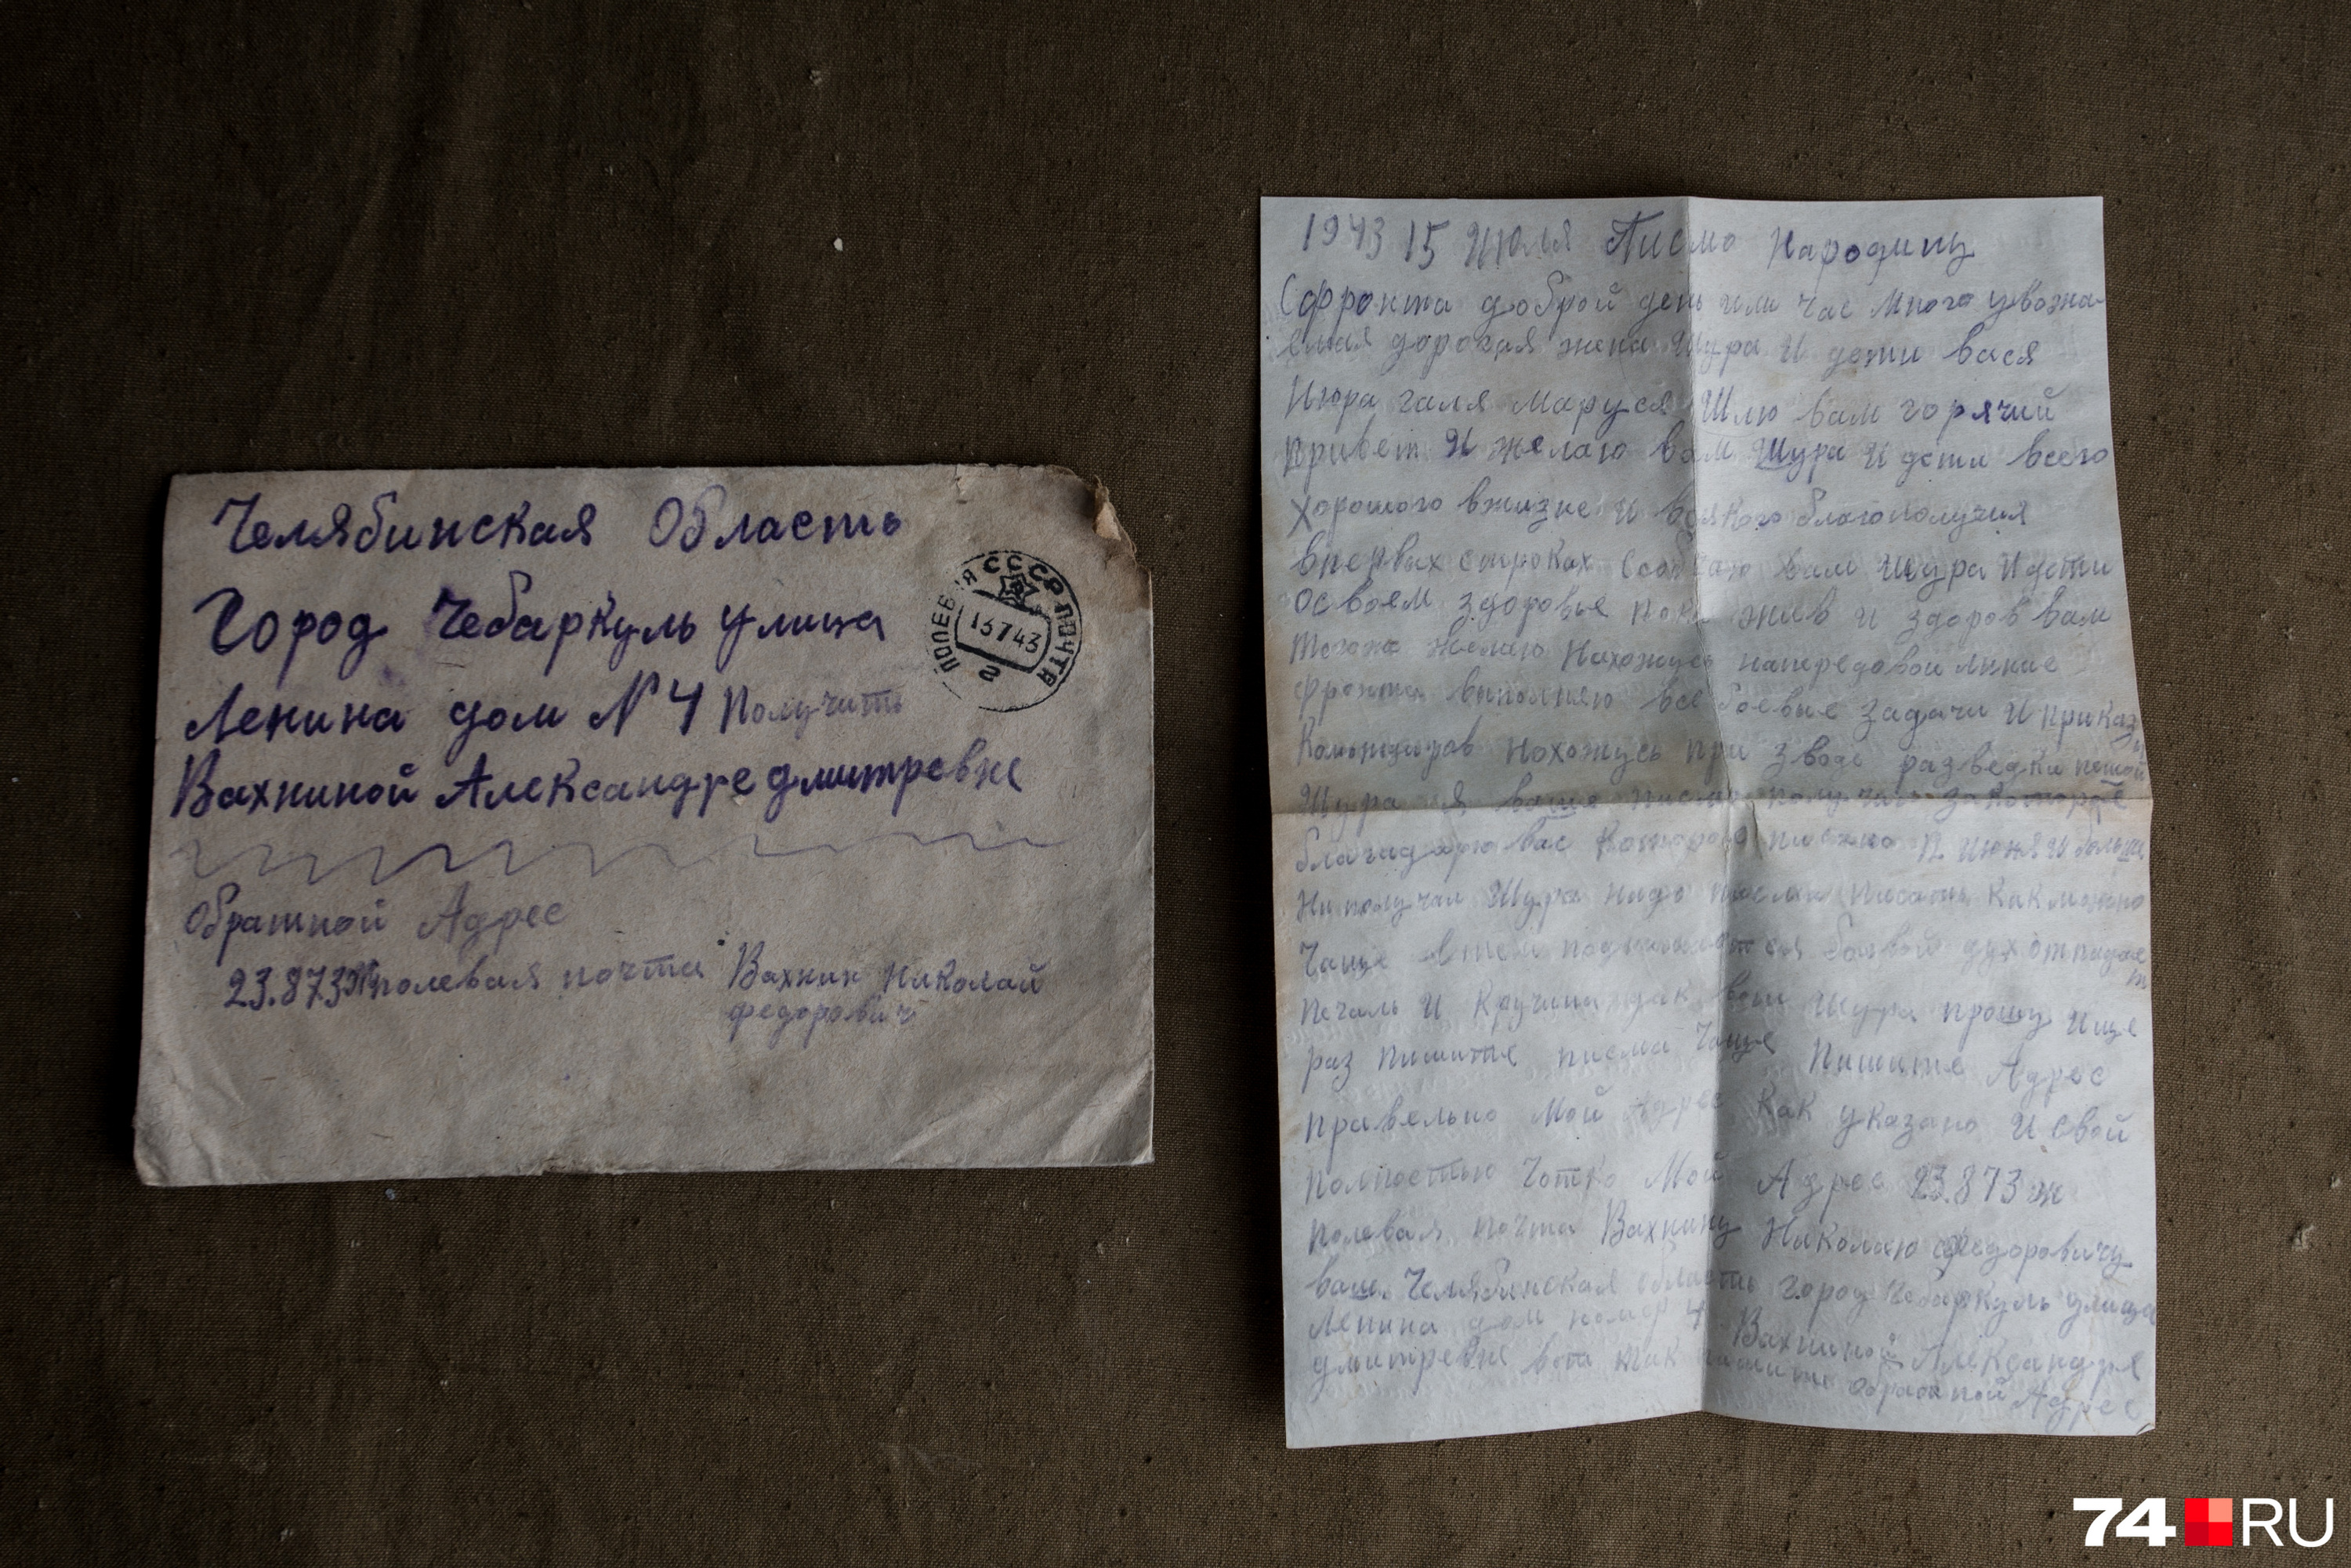 Челябинская Область
Город Чебаркуль улица
Ленина дом N 4 Получить
Вахниной Александре дмитревне
Обратной Адрес
23.873Ж полевая почта Вахнин Николай
федорович
ПОЛЕВАЯ СССР ПОЧТА
13 7 43
2
1943 15 Июля Писмо Народину
Сфронта доброй день или час многоуважа-
емая дорогая жена Шура И дети вася
Июра галя маруся Шлю вам горячий
привет И желаю вам Шура И дети всего
хорошого вжизне и всякого благополучия
впервых строках сообчаю вам Шура И дети
освоем здоровье пока жив и здоров вам
тогоже желаю Нахожусь напередовои линие
фронта выполняю все боевые задачи И приказы
Командиров нохожусь при зводе разведки пешой
Шура я ваше писмо получил закоторое
благадарю вас Которое писмо И июня И больше
Ни получал Шура надо писма писать как можно
Чаще втем подымается боевой дух отпадает
печаль И кручина так вот Шура прошу Ище
раз пишите писма Чаще Пишите Адрес
правельно Мой Адрес как указано И свой
полностью Чотко Мой Адрес 23.873 ж
полевая почта Вахнину Николаю Федоровичу
ваш. Челябинская область город Чебаркуль улица
Ленина дом номер 4 Вахниной Александре
дмитревне вот так пишите обратной Адрес
74 RU